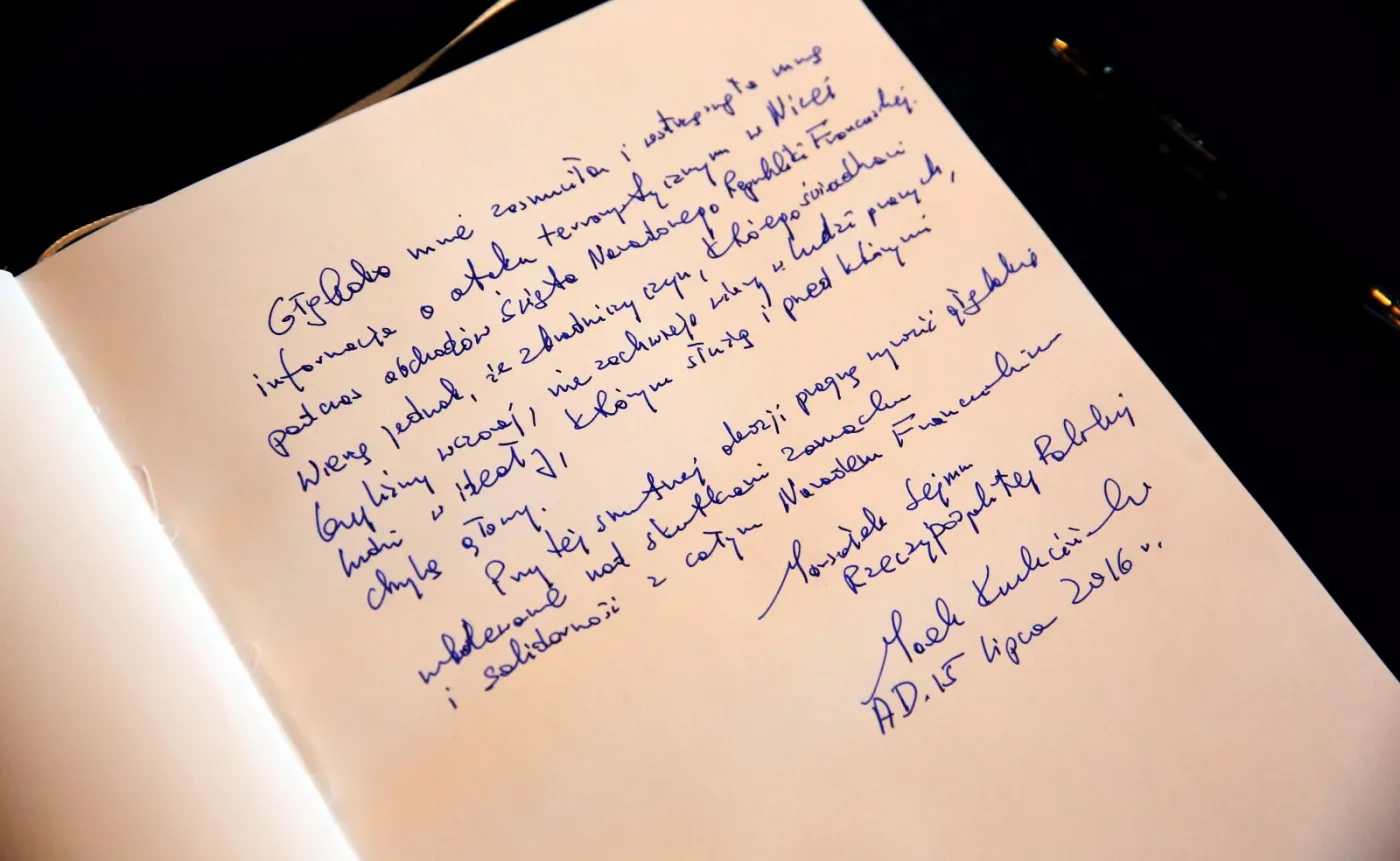 Głęboko mnie zasmuciła i wstrząsnęła mną
informacja o ataku terrorystycznym w Nicei
podczas obchodów Święta Narodowego Republiki Francuskiej.
Wierzę jednak, że zbrodniczy czyn, którego świadkami
byliśmy wczoraj, nie zachwieje wiary u ludzi prawych,
ludzi w ideały, którym służą i przed którymi
chylą głowy.
Przy tej smutnej okazji pragnę wyrazić głębokie
ubolewanie nad skutkami zamachu
i solidarność z całym Narodem Francuskim
Marszałek Sejmu
Rzeczypospolitej Polskiej
Marek Kuchciński
AD. 15 lipca 2016 r.